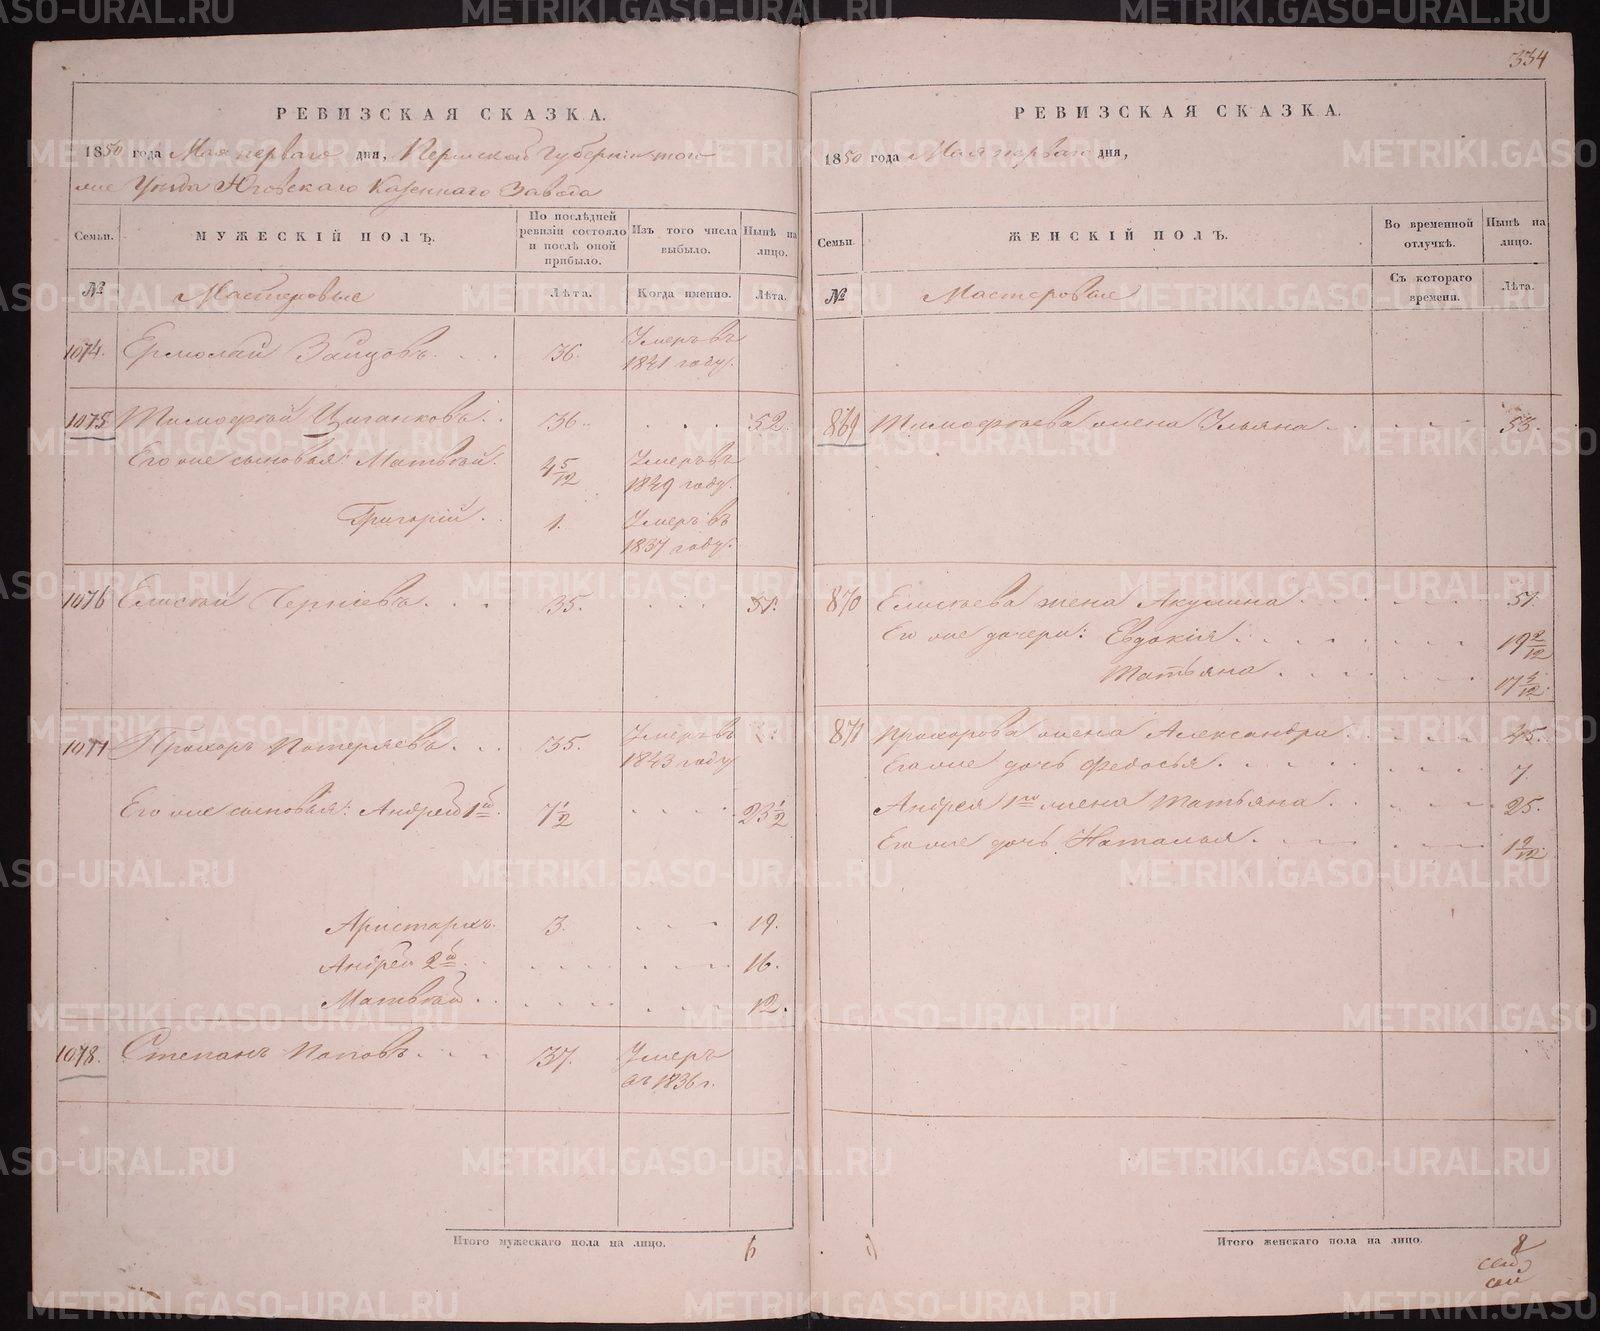 334
РЕВИЗСКАЯ СКАЗКА.
1850 года Мая первого дня, Пермской Губернии того
же Уезда Юговскаго Казеннаго Завода
Семьи.
МУЖЕСКІЙ ПОЛЪ.
По послѣдней ревизіи состояло и послѣ оной прибыло.
Изъ того числа выбыло.
Нынѣ на лицо.
№
Мастеровые
Лѣта.
Когда именно.
Лѣта.
1074. Ермолай Зайцовъ. 36. Умеръ въ
1841 году.
1075 Тимофѣй Циганковъ. 36. 52.
Его же сыновья: Матвѣй. 4 5/12 Умеръ въ
1849 году.
Григорій. 1. Умеръ въ
1837 году.
1076 Елисѣй Черневъ. 35. 51.
1077 Прохоръ Потеряевъ. 35. Умеръ въ
1843 году
Его же сыновья: Андрей 1й. 7 1/2 23 1/2
Аристархъ. 3. 19.
Андрей 2й. 16.
Матвѣй. 12.
1078. Степанъ Поповъ. 37. Умеръ
въ 1836 г.
Итого мужескаго пола на лицо. 6
РЕВИЗСКАЯ СКАЗКА.
1850 года Мая перваго дня,
Семьи.
ЖЕНСКІЙ ПОЛЪ.
Во временной отлучкѣ.
Нынѣ на лицо.
№
Мастеровые
Съ котораго времени.
Лѣта.
869 Тимофѣева жена Ульяна. 53.
870 Елисѣева жена Акулина 51.
Его же дочери: Евдокія. 19 2/12
Татьяна. 17 5/12.
871 Прохорова жена Александра 45.
Его же дочь Федосья. 7.
Андрея 1го жена Татьяна. 25.
Его же дочь Наталья. 1 2/12.
Итого женскаго пола на лицо. 8